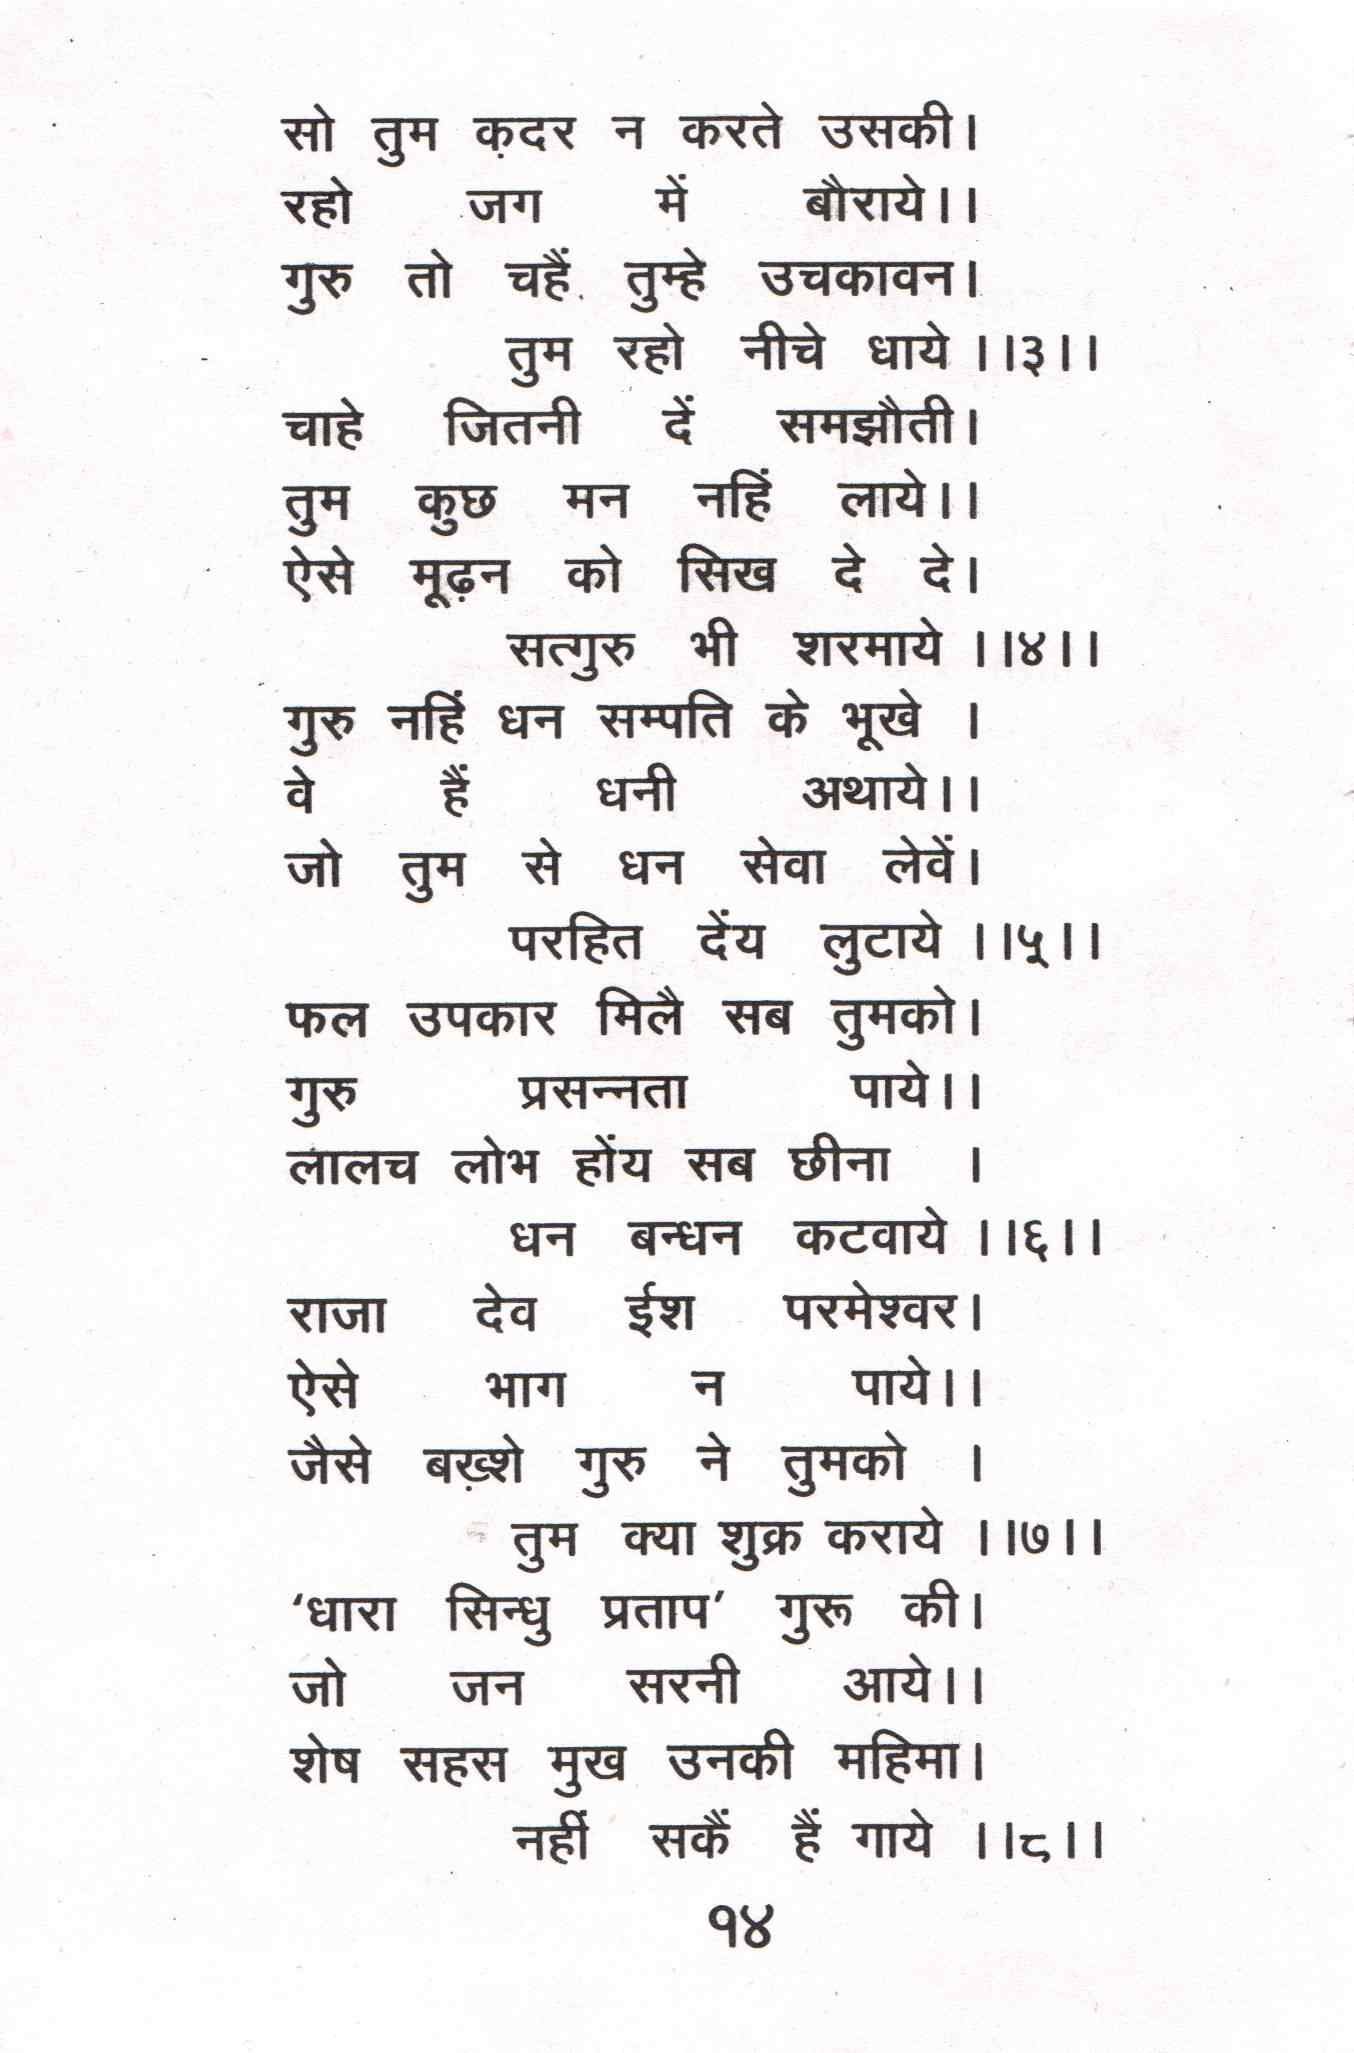 सो तुम क़दर न करते उसकी।
रहो जग में बौराये।।
गुरु तो चहैं तुम्हे उचकावन।
तुम रहो नीचे धाये ।।३।।
चाहे जितनी दें समझौती।
तुम कुछ मन नहिं लाये।।
ऐसे मूढ़न को सिख दे दे।
सत्गुरु भी शरमाये ।।४।।
गुरु नहिं धन सम्पति के भूखे ।
वे हैं धनी अथाये।।
जो तुम से धन सेवा लेवें।
परहित देंय लुटाये ।।५।।
फल उपकार मिलै सब तुमको।
गुरु प्रसन्नता पाये।।
लालच लोभ होंय सब छीना ।
धन बन्धन कटवाये ।।६।।
राजा देव ईश परमेश्वर।
ऐसे भाग न पाये।।
जैसे बख़्शे गुरु ने तुमको ।
तुम क्या शुक्र कराये ।।७।।
‘धारा सिन्धु प्रताप’ गुरू की।
जो जन सरनी आये।।
शेष सहस मुख उनकी महिमा।
नहीं सकैं हैं गाये ।।८।।
१४